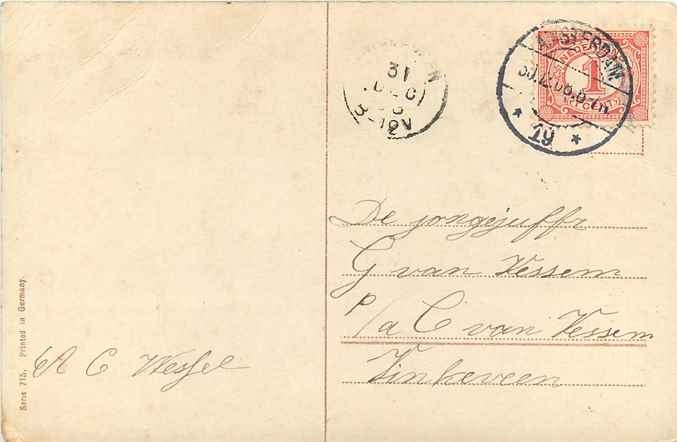 31
DEC
8-12V
AMSTERDAM
30.12.08.6-7N
* 19 *
NEDERLAND
1
CENT
De jongejuffr
G van Vessem
P/a C van Vessem
Vinkeveen
A C Wessel
Serie 715. Printed in Germany